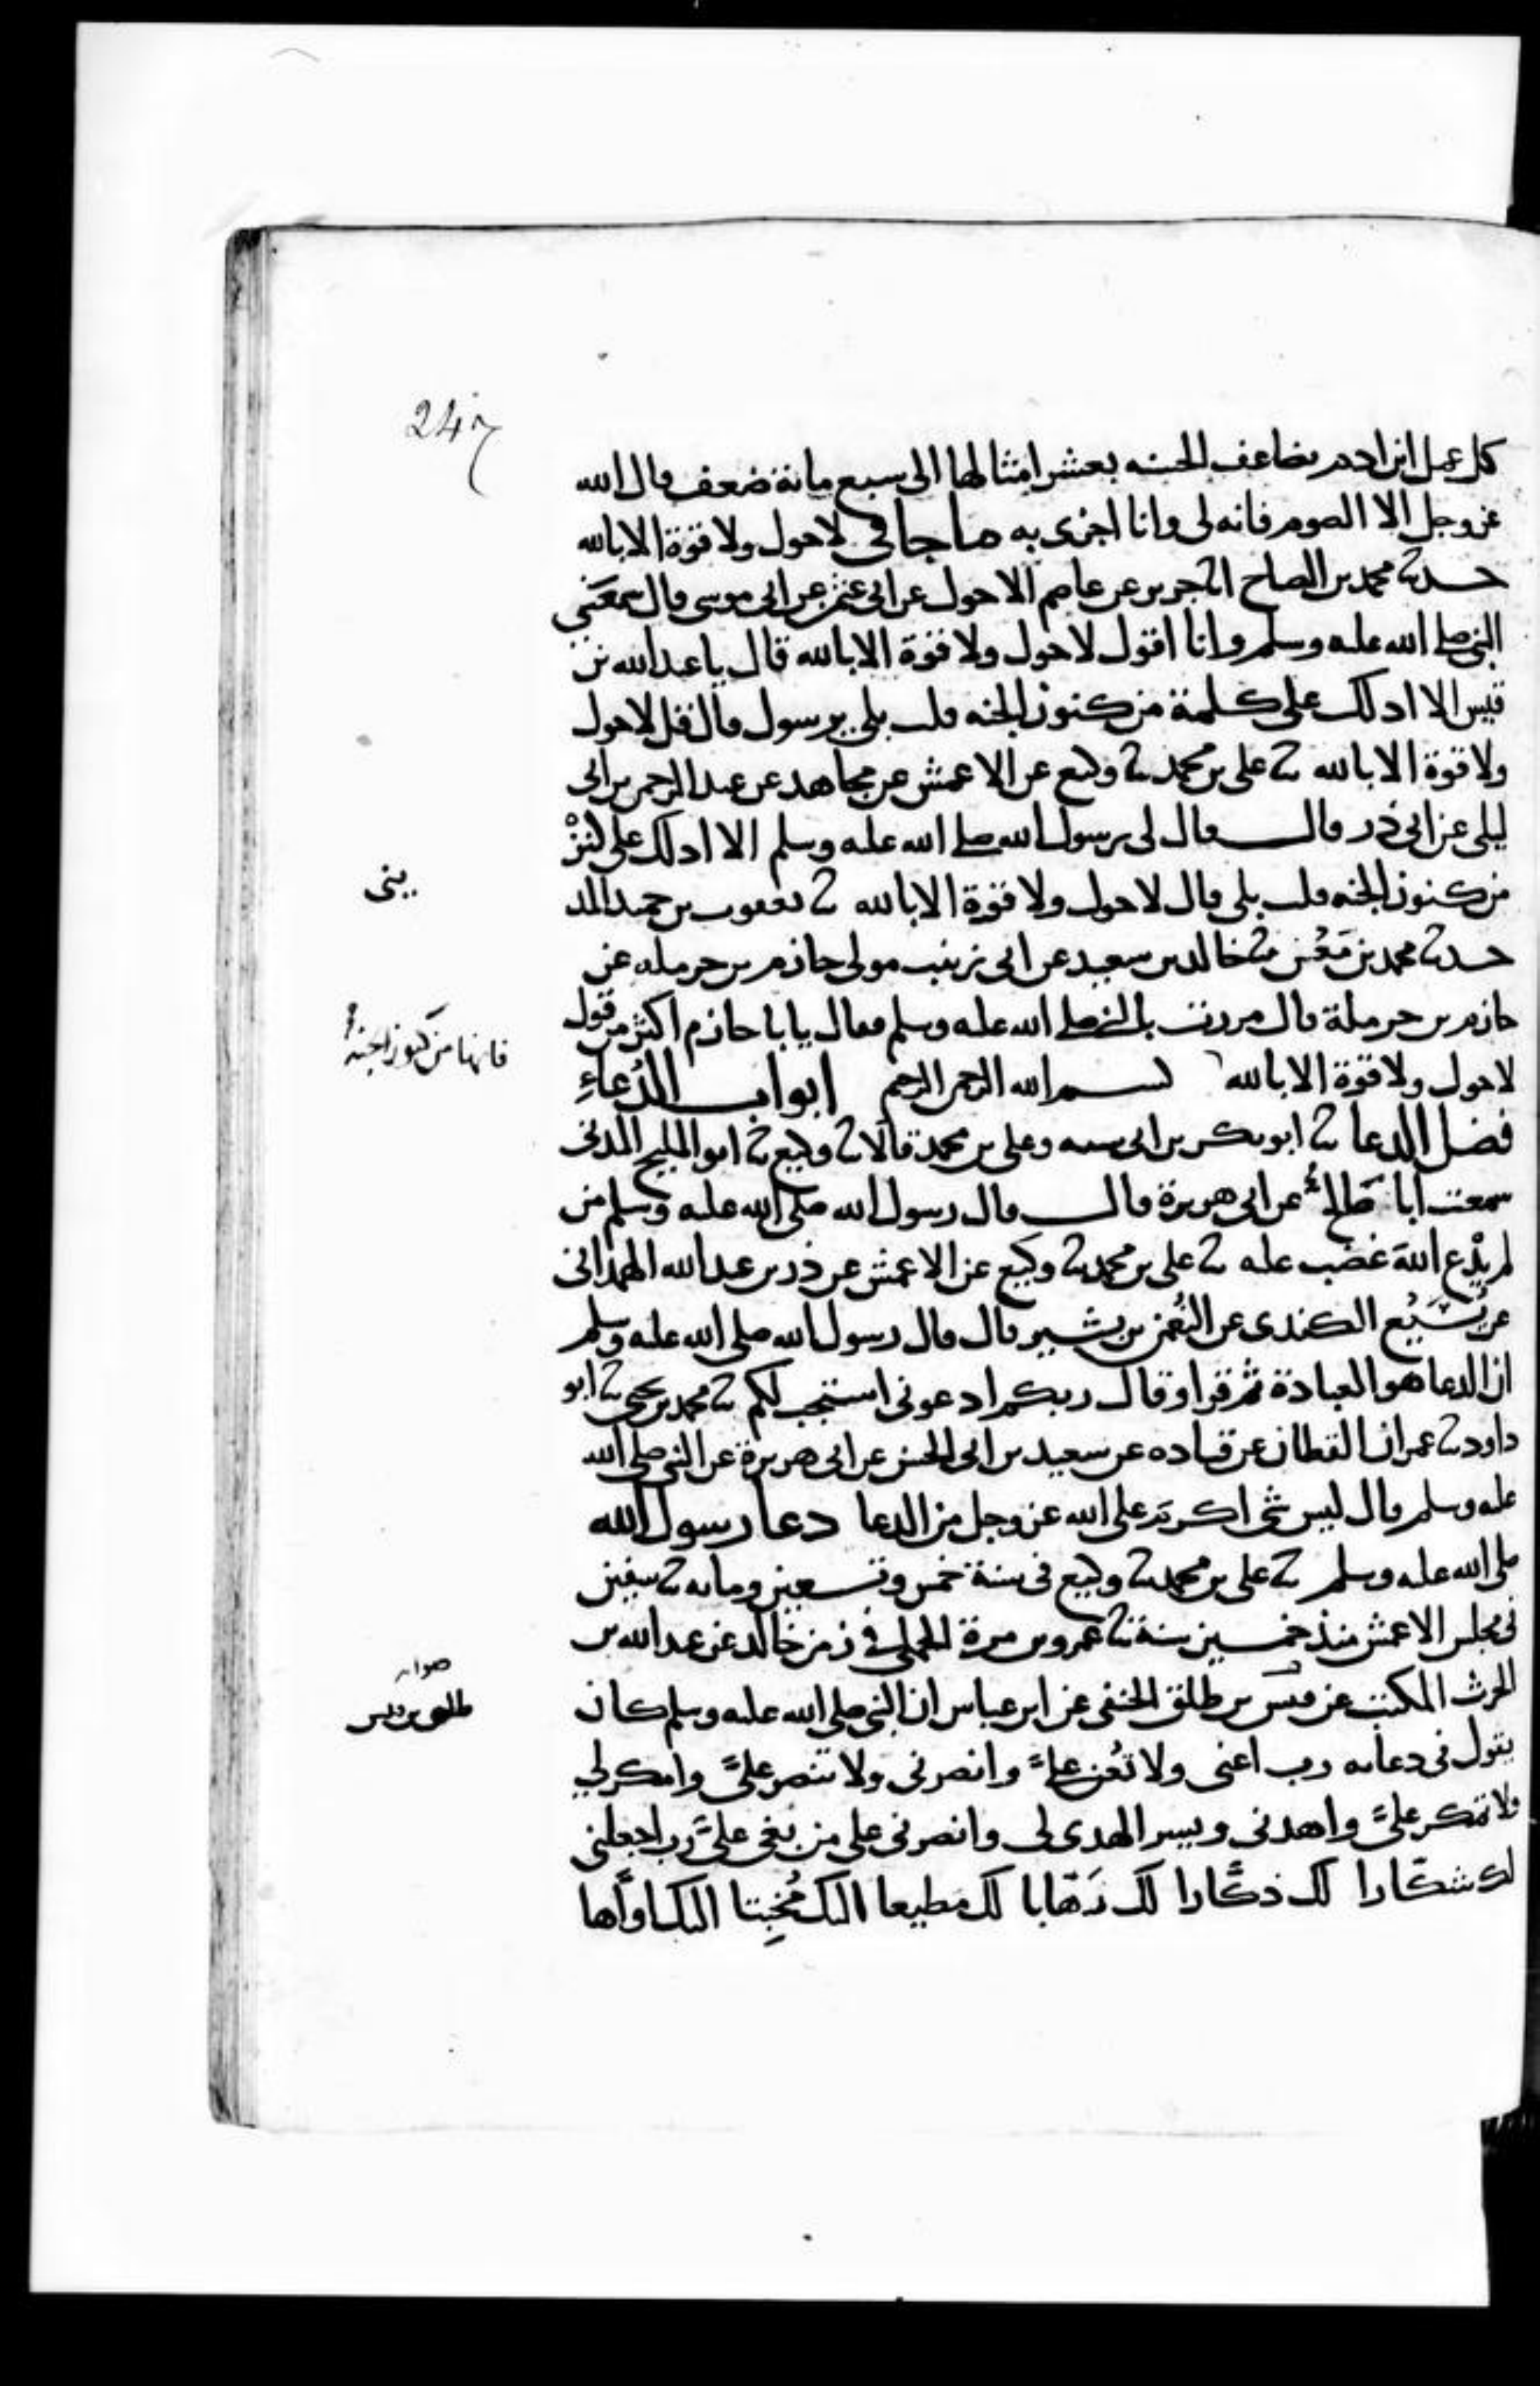 247
كل عمل ابن ادم يضاعف الحسنه بعشر امثالها الى سبع مائة ضعف قال الله
عز وجل الا الصوم فانه لى وانا اجزى به ما جا فى لا حول ولا قوة الا بالله
حدثنا محمد بن الصباح انا جرير عن عاصم الاحول عن ابى عثمن عن ابى موسى قال سمعنى
النبى صلى الله عليه وسلم وانا اقول لا حول ولا قوة الا بالله قال يا عبد الله بن
قيس الا ادلك على كلمة من كنوز الجنه قلت بلى يرسول قال قل لا حول
ولا قوة الا بالله ثنا على بن محمد ثنا وكيع عن الاعمش عن مجاهد عن عبد الرحمن بن ابى
ليلى عن ابى ذر قال قال لى رسول الله صلى الله عليه وسلم الا ادلك على كنز
من كنوز الجنه قلت بلى قال لا حول ولا قوة الا بالله ثنا يعقوب بن حميد المد
ينى
حدثنا محمد بن معن ثنا خالد بن سعيد عن ابى زينب مولى حازم بن حرملة عن
حازم بن حرملة قال مررت بالنبى صلى الله عليه وسلم فقال يابا حازم اكثر من قول
لا حول ولا قوة الا بالله بسم الله الرحمن الرحيم ابواب الدُعاءِ
فانها من كنوز الجنة
فضل الدعا ثنا ابو بكر بن ابى شيبه وعلى بن محمد قالا ثنا وكيع ثنا ابو المليح المدنى
سمعت ابا صالح عن ابى هريرة قال قال رسول الله صلى الله عليه وسلم من
لم يدْع اللهَ غضب عليه ثنا على بن محمد ثنا وكيع عن الاعمش عن ذر بن عبد الله الهمدانى
عن يُسَيْع الكندى عن النعمن بن بشير قال قال رسول الله صلى الله عليه وسلم
ان الدعا هو العبادة ثم قرا وقال ربكم ادعونى استجب لكم ثنا محمد بن يحيى ثنا ابو
داود ثنا عمران القطان عن قتاده عن سعيد بن ابى الحسن عن ابى هريرة عن النبى صلى الله
عليه وسلم قال ليس شى اكرم على الله عز وجل من الدعا دعا رسول الله
صلى الله عليه وسلم ثنا على بن محمد ثنا وكيع فى سنة خمس وتسعين ومايه ثنا سفين
فى مجلس الاعمش منذ خمسين سنة ثنا عمرو بن مرة الجملى فى زمن خالد عن عبد الله بن
الحرث المكتب عن قيس بن طلق الحنفى عن ابن عباس ان النبى صلى الله عليه وسلم كان
صوابه
طليق بن قيس
يقول فى دعائه رب اعنى ولا تُعن علىَّ وانصرنى ولا تنصر علىَّ وامكر لى
ولا تمكر علىَّ واهدنى ويسر الهدى لى وانصرنى على من بغى علىَّ رب اجعلنى
لك شكّارا لك ذكّارا لك رَهّابا لك مطيعا اليك مُخبِتا اليك اوّاها